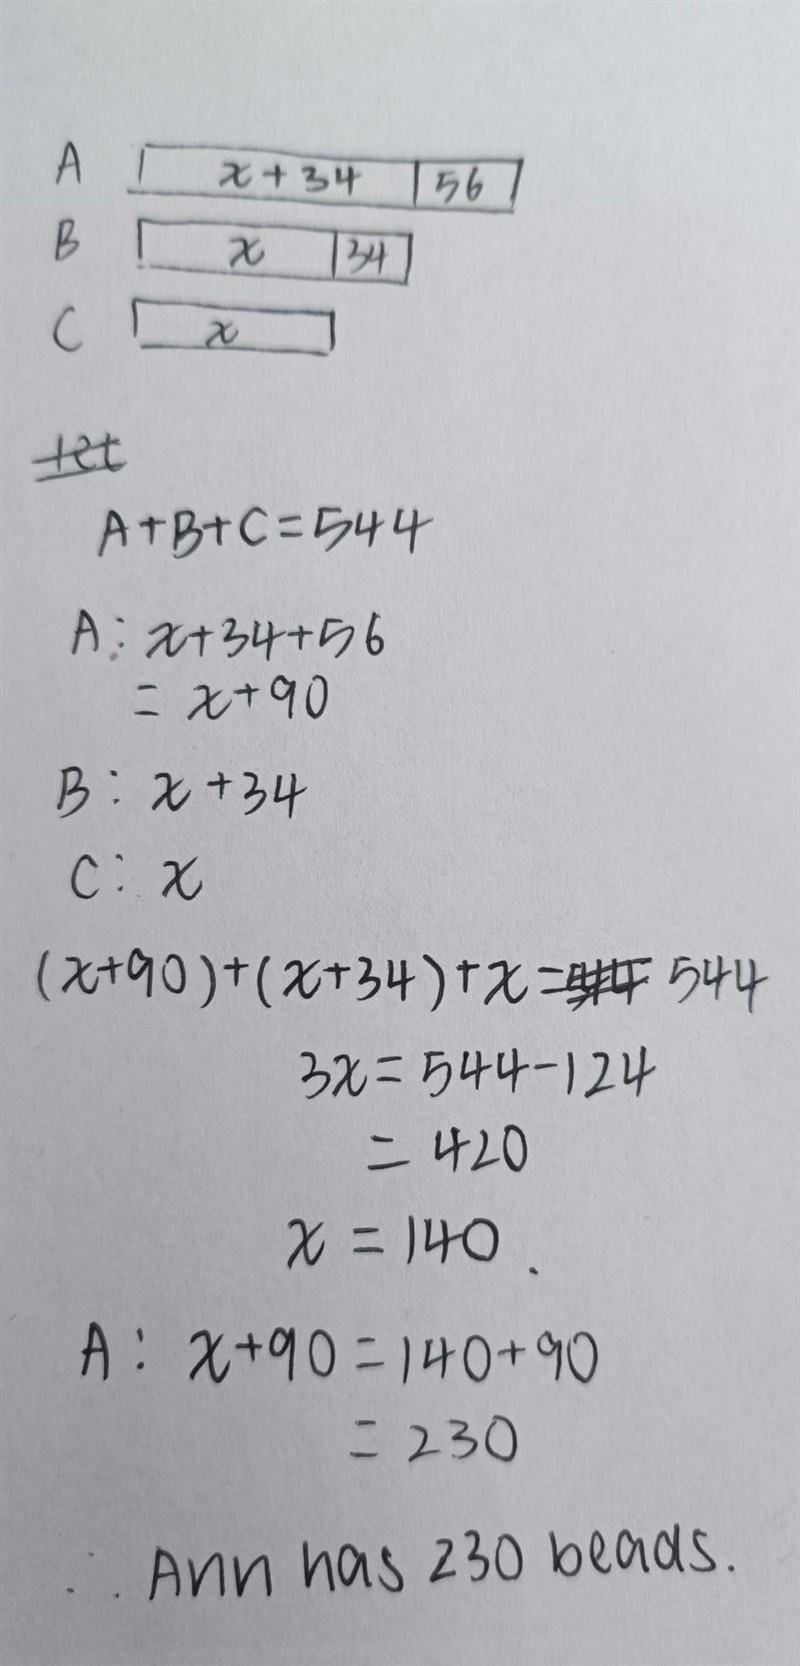 A x+34 56
B x 34
C x
let
A+B+C=544
A: x+34+56
= x+90
B: x+34
C: x
(x+90)+(x+34)+x= 544
3x=544-124
= 420
x = 140.
A: x+90=140+90
= 230
∴ Ann has 230 beads.